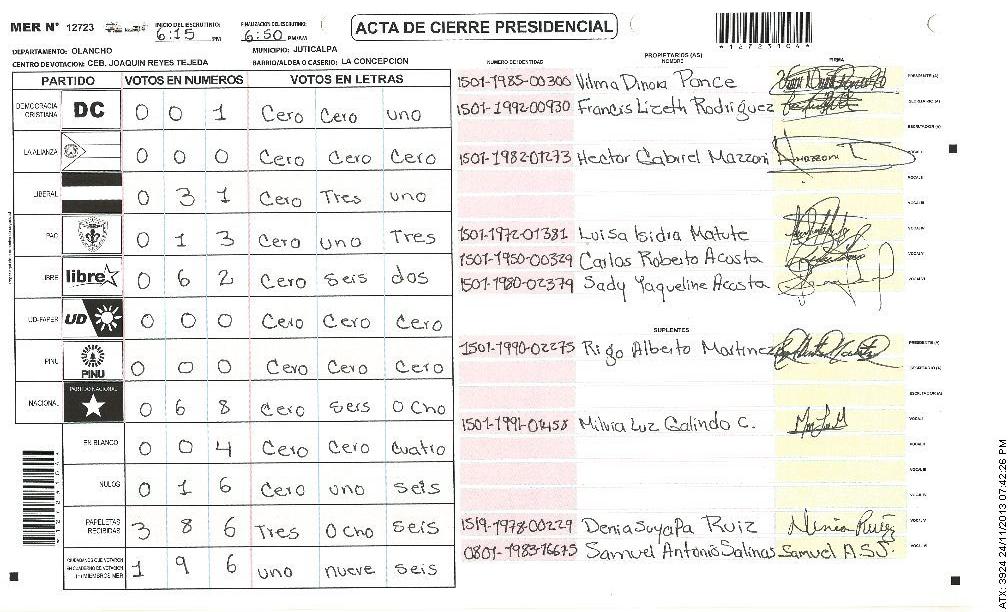 MER N° 12723 INICIO DEL ESCRUTINIO: 6:15 PM FINALIZACION DEL ESCRUTINIO: 6:50 PM/AM ACTA DE CIERRE PRESIDENCIAL *12723104*
DEPARTAMENTO: OLANCHO MUNICIPIO: JUTICALPA
CENTRO DE VOTACION: CEB. JOAQUIN REYES TEJEDA BARRIO/ALDEA O CASERIO: LA CONCEPCION
PARTIDO VOTOS EN NUMEROS VOTOS EN LETRAS
DEMOCRACIA CRISTIANA DC 0 0 1 Cero Cero uno
LA ALIANZA 0 0 0 Cero Cero Cero
LIBERAL 0 3 1 Cero Tres uno
PAC 0 1 3 Cero uno Tres
LIBRE libre 0 6 2 Cero seis dos
UD-FAPER UD 0 0 0 Cero Cero Cero
PINU PINU 0 0 0 Cero Cero Cero
NACIONAL PARTIDO NACIONAL 0 6 8 Cero seis ocho
EN BLANCO 0 0 4 Cero Cero cuatro
NULOS 0 1 6 Cero uno seis
PAPELETAS RECIBIDAS 3 8 6 Tres ocho seis
CIUDADANOS QUE VOTARON 1 9 6 uno nueve seis
NUMERO DE IDENTIDAD PROPIETARIOS (AS) NOMBRE FIRMA
1501-1985-00300 Vilma Dinora Ponce PRESIDENTE (A)
1501-1992-00930 Francis Lizeth Rodriguez SECRETARIO (A)
ESCRUTADOR (A)
1501-1982-01273 Hector Gabriel Mazzoni VOCAL I
VOCAL II
VOCAL III
1501-1972-01381 Luisa Isidra Matute VOCAL IV
1501-1950-00329 Carlos Roberto Acosta VOCAL V
1501-1980-02379 Sady Yaqueline Acosta VOCAL VI
SUPLENTES
1501-1990-02275 Rigo Alberto Martinez PRESIDENTE (A)
SECRETARIO (A)
ESCRUTADOR (A)
1501-1991-01458 Milvia Luz Galindo C. VOCAL I
VOCAL II
VOCAL III
VOCAL IV
1519-1978-00229 Denia Suyapa Ruiz VOCAL V
0801-1983-16615 Samuel Antonio Salinas Samuel A.S.J. VOCAL VI
ATX: 3924 24/11/2013 07:42:26 PM